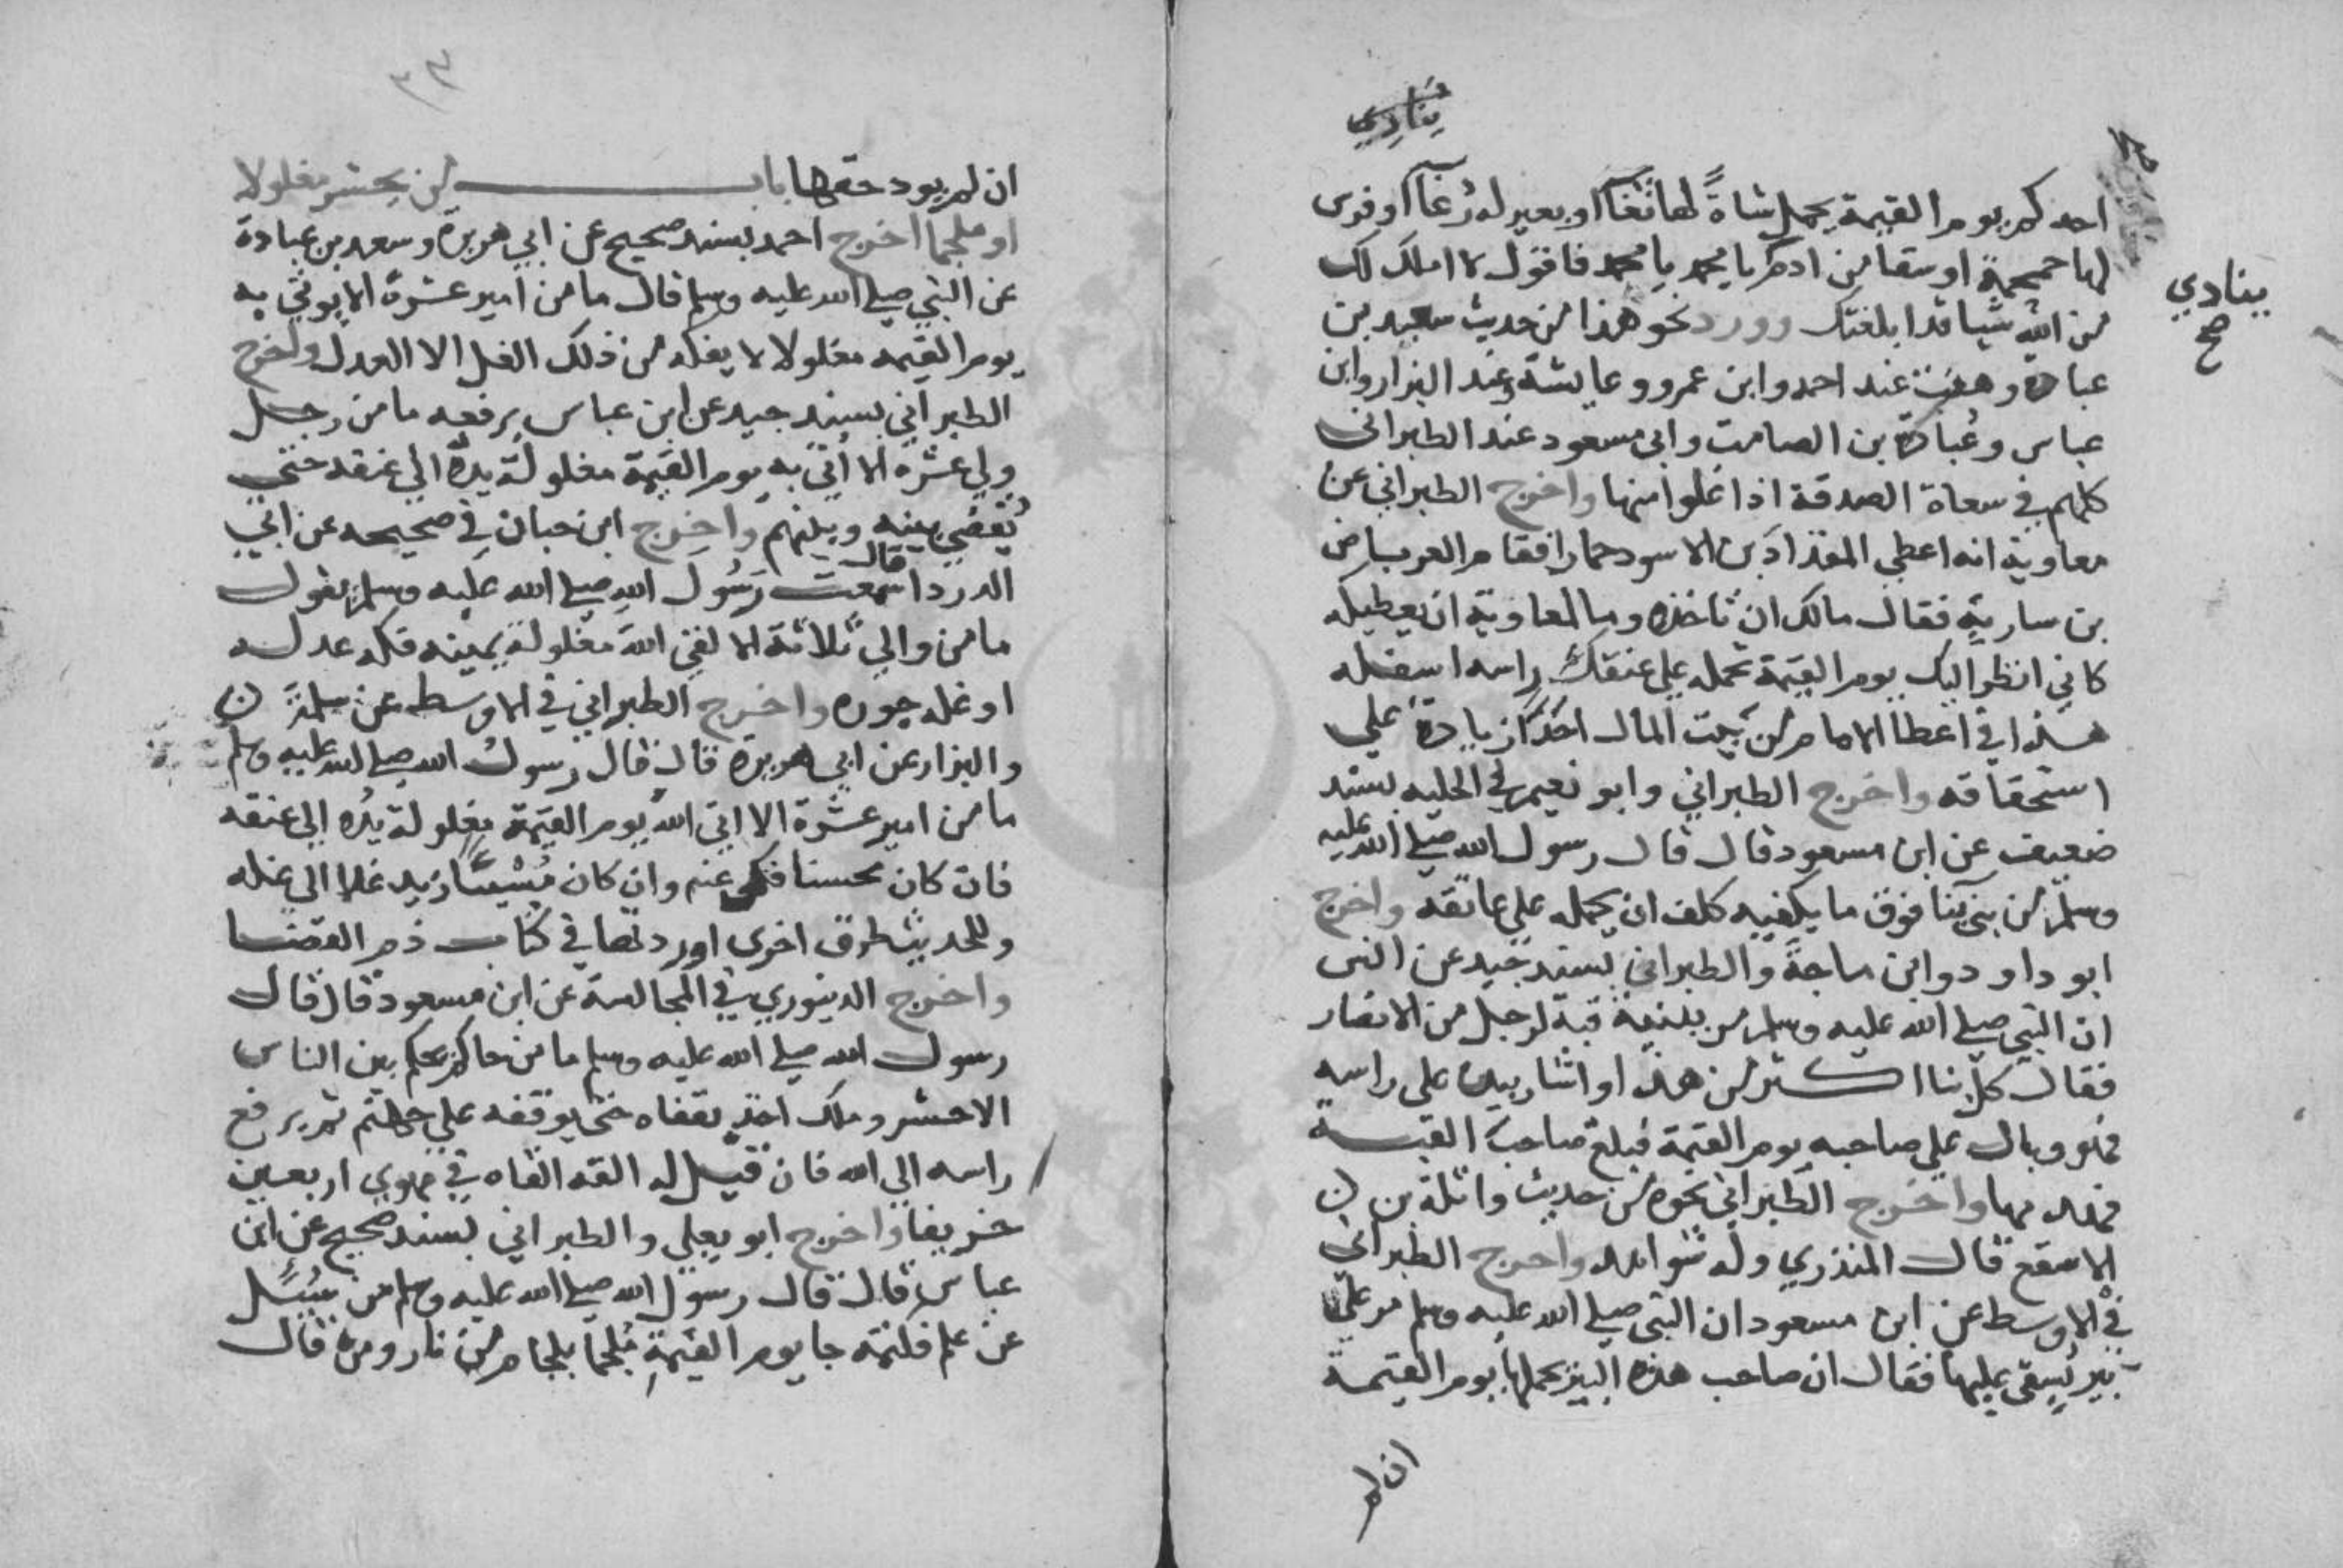 ينادي
احدكم يوم القيمة يحمل شاة لها ثغآ او بعير له رغآ او فرس
لها حمحمة او سقا من ادم يا محمد يا محمد فاقول لا املك لك
من الله شيا قد ابلغتك وورد نحو هذا من حديث سعيد بن
ينادي
صح
عبادة وهلب عند احمد وابن عمر وعايشة وعند البزار وابن
عباس وعبادة بن الصامت وابى مسعود عند الطبرانى
كلهم في سعاة الصدقة اذا غلوا منها واخرج الطبراني عن
معاوية انه اعطى المقداد بن الاسود حمارا فقام العرباض
بن سارية فقال مالك ان تاخذه وما لمعاوية ان يعطيكه
كاني انظر اليك يوم القيمة تحمله على عنقك راسه اسفله
هذا في اعطا الامام من بيت المال احدا زيادة على
استحقاقه واخرج الطبراني وابو نعيم في الحليه بسند
ضعيف عن ابن مسعود قال قال رسول الله صلى الله عليه
وسلم من بنى بنآ فوق ما يكفيه كلف ان يحمله على عاتقه واخرج
ابو داود وابن ماجة والطبراني بسند جيد عن انس
ان النبي صلى الله عليه وسلم مر ببنية قبة لرجل من الانصار
فقال كل بنا اكثر من هذا واشار بيده على راسه
فهو وبال على صاحبه يوم القيمة فبلغ صاحب القبة
فهدمها واخرج الطبراني نحوه من حديث واثلة بن
الاسقع قال المنذري وله شواهد واخرج الطبرانى
في الاوسط عن ابن مسعود ان النبى صلى الله عليه وسلم مر على
بير يسقى عليها فقال ان صاحب هذه البير يحملها يوم القيمة
ان لم
٣٣
ان لم يود حقها باب من يحشر مغلولا
او ملجما اخرج احمد بسند صحيح عن ابي هريرة وسعد بن عبادة
عن النبي صلى الله عليه وسلم قال ما من امير عشرة الا يوتي به
يوم القيمه مغلولا لا يفكه من ذلك الغل الا العدل واخرج
الطبراني بسند جيد عن ابن عباس يرفعه ما من رجل
ولي عشرة الا اتي به يوم القيمة مغلولة يده الى عنقه حتى
يقضي بينه وبينهم واخرج ابن حبان في صحيحه عن ابي
الدردا قال سمعت رسول الله صلى الله عليه وسلم يقول
ما من والي ثلاثة الا لقي الله مغلولة يمينه فكه عدله
او غله جوره واخرج الطبراني في الاوسط عن
والبزار عن ابي هريرة قال قال رسول الله صلى الله عليه وسلم
ما من امير عشرة الا اتى الله يوم القيمة مغلولة يده الى عنقه
فان كان محسنا فك عنه وان كان مسيئا زيد غلا الى غله
وللحديث طرق اخرى اوردتها في كتاب ذم القضا
واخرج الدينوري في المجالسة عن ابن مسعود قال قال
رسول الله صلى الله عليه وسلم ما من حاكم يحكم بين الناس
الا حشر وملك اخذ بقفاه حتى يوقفه على جهنم ثم يرفع
راسه الى الله فان قيل له القه القاه في مهوي اربعين
خريفا واخرج ابو يعلي والطبراني بسند صحيح عن ابن
عباس قال قال رسول الله صلى الله عليه وسلم من سيل
عن علم فكتمه جا يوم القيمة ملجما بلجام من نار ومن قال